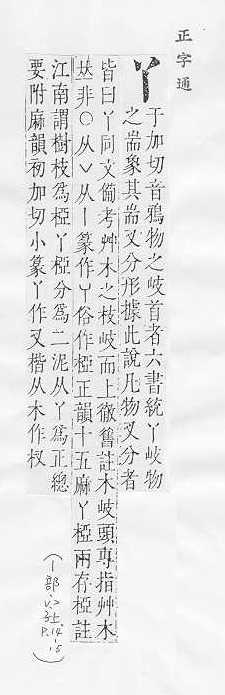 正字通
丫
于加切音鴉物之岐首者六書統丫岐物
之耑象其耑叉分形據此說凡物叉分者
皆曰丫同文備考艸木之枝岐而上徹舊註木岐頭專指艸木
𠀤非○从∨从丨篆作丫俗作椏正韻十五麻丫椏兩存椏註
江南謂樹枝爲椏丫椏分爲二泥从丫爲正總
要附麻韻初加切小篆丫作叉楷从木作杈
(丨部 P.14-15)